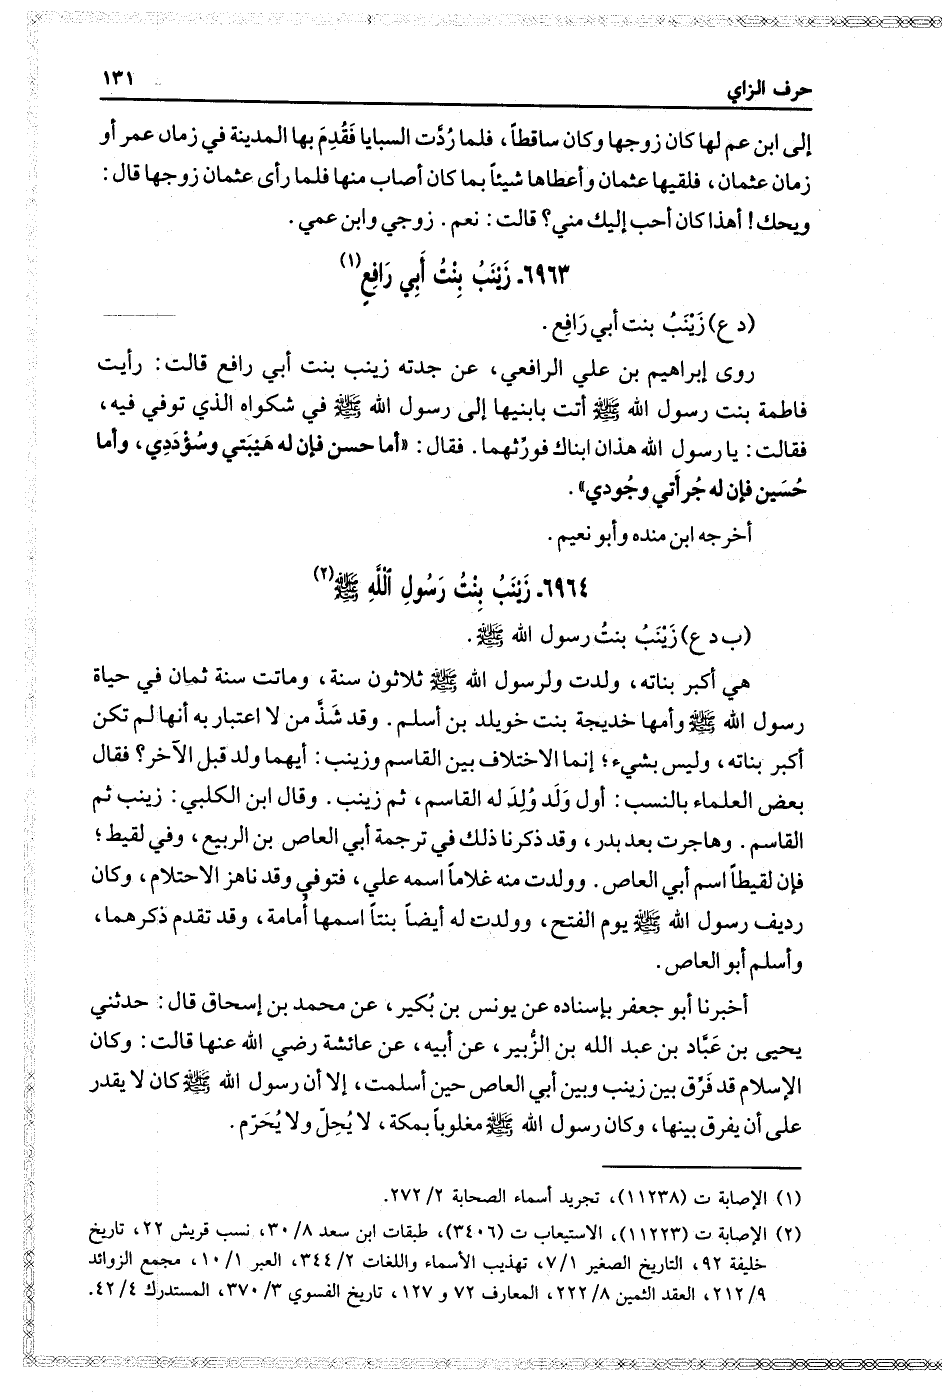 حرف الزاي
١٣١
إلى ابن عم لها كان زوجها وكان ساقطاً، فلما رُدَّت السبايا فَقُدِمَ بها المدينة في زمان عمر أو
زمان عثمان، فلقيها عثمان وأعطاها شيئاً بما كان أصاب منها فلما رأى عثمان زوجها قال:
ويحك! أهذا كان أحب إليك مني؟ قالت: نعم. زوجي وابن عمي.
٦٩٦٣ـ زَيْنَبُ بِنْتُ أَبِي رَافِعٍ(١)
(د ع) زَيْنَبُ بنت أبي رَافِع.
روى إبراهيم بن علي الرافعي، عن جدته زينب بنت أبي رافع قالت: رأيت
فاطمة بنت رسول الله ﷺ أتت بابنيها إلى رسول الله ﷺ في شكواه الذي توفي فيه،
فقالت: يا رسول الله هذان ابناك فورِّثهما. فقال: «أما حسن فإن له هَيْبَتي وسُؤْدَدِي، وأما
حُسَين فإن له جُرأَتي وجُودي».
أخرجه ابن منده وأبو نعيم.
٦٩٦٤ـ زَيْنَبُ بِنْتُ رَسُولِ ٱللَّهِ ﷺ(٢)
(ب د ع) زَيْنَبُ بنتُ رسول الله ﷺ.
هي أكبر بناته، ولدت ولرسول الله ﷺ ثلاثون سنة، وماتت سنة ثمان في حياة
رسول الله ﷺ وأمها خديجة بنت خويلد بن أسلم. وقد شَذَّ من لا اعتبار به أنها لم تكن
أكبر بناته، وليس بشيء؛ إنما الاختلاف بين القاسم وزينب: أيهما ولد قبل الآخر؟ فقال
بعض العلماء بالنسب: أول وَلَد وُلِدَ له القاسم، ثم زينب. وقال ابن الكلبي: زينب ثم
القاسم. وهاجرت بعد بدر، وقد ذكرنا ذلك في ترجمة أبي العاص بن الربيع، وفي لقيط؛
فإن لقيطاً اسم أبي العاص. وولدت منه غلاماً اسمه علي، فتوفي وقد ناهز الاحتلام، وكان
رديف رسول الله ﷺ يوم الفتح، وولدت له أيضاً بنتاً اسمها أُمامة، وقد تقدم ذكرهما،
وأسلم أبو العاص.
أخبرنا أبو جعفر بإسناده عن يونس بن بُكير، عن محمد بن إسحاق قال: حدثني
يحيى بن عَبَّاد بن عبد الله بن الزُّبير، عن أبيه، عن عائشة رضي الله عنها قالت: وكان
الإسلام قد فَرَّق بين زينب وبين أبي العاص حين أسلمت، إلا أن رسول الله ﷺ كان لا يقدر
على أن يفرق بينها، وكان رسول الله ﷺ مغلوباً بمكة، لا يُحِلّ ولا يُحَرّم.
(١) الإصابة ت (١١٢٣٨)، تجريد أسماء الصحابة ٢/ ٢٧٢.
(٢) الإصابة ت (١١٢٢٣)، الاستيعاب ت (٣٤٠٦)، طبقات ابن سعد ٨/ ٣٠، نسب قريش ٢٢، تاريخ
خليفة ٩٢، التاريخ الصغير ١/ ٧، تهذيب الأسماء واللغات ٢/ ٣٤٤، العبر ١/ ١٠، مجمع الزوائد
٩/ ٢١٢، العقد الثمين ٨/ ٢٢٢، المعارف ٧٢ و ١٢٧، تاريخ الفسوي ٣/ ٣٧٠، المستدرك ٤/ ٤٢.